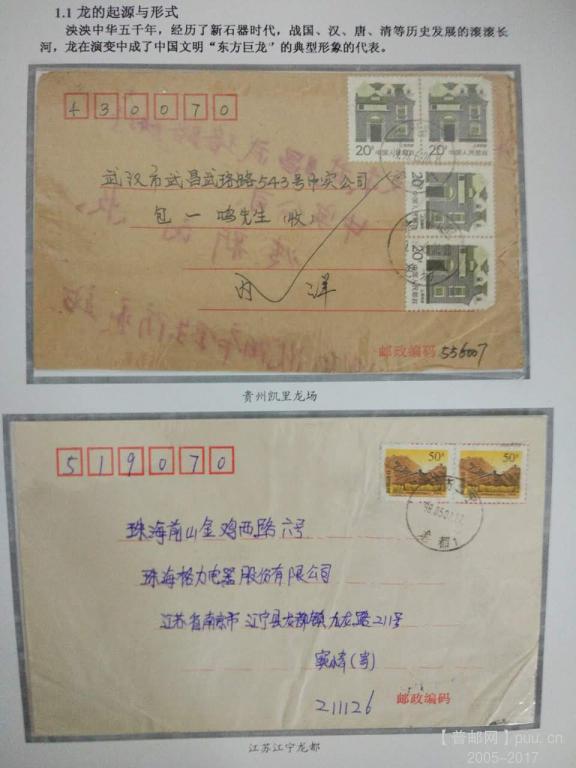 1.1 龙的起源与形式
泱泱中华五千年，经历了新石器时代，战国、汉、唐、清等历史发展的滚滚长
河，龙在演变中成了中国文明“东方巨龙”的典型形象的代表。
430070
20分 中国人民邮政
20分 中国人民邮政
20分 中国人民邮政
20分 中国人民邮政
武汉市武昌武珞路543号中实公司
包一鸣先生（收）
内 洋
邮政编码 556007
贵州凯里龙场
519070
50分
50分
龙都1
珠海前山金鸡西路六号
珠海格力电器股份有限公司
江苏省南京市江宁县龙都镇九龙路211号
211126
邮政编码
江苏江宁龙都
【普邮网】puu.cn
2005-2017